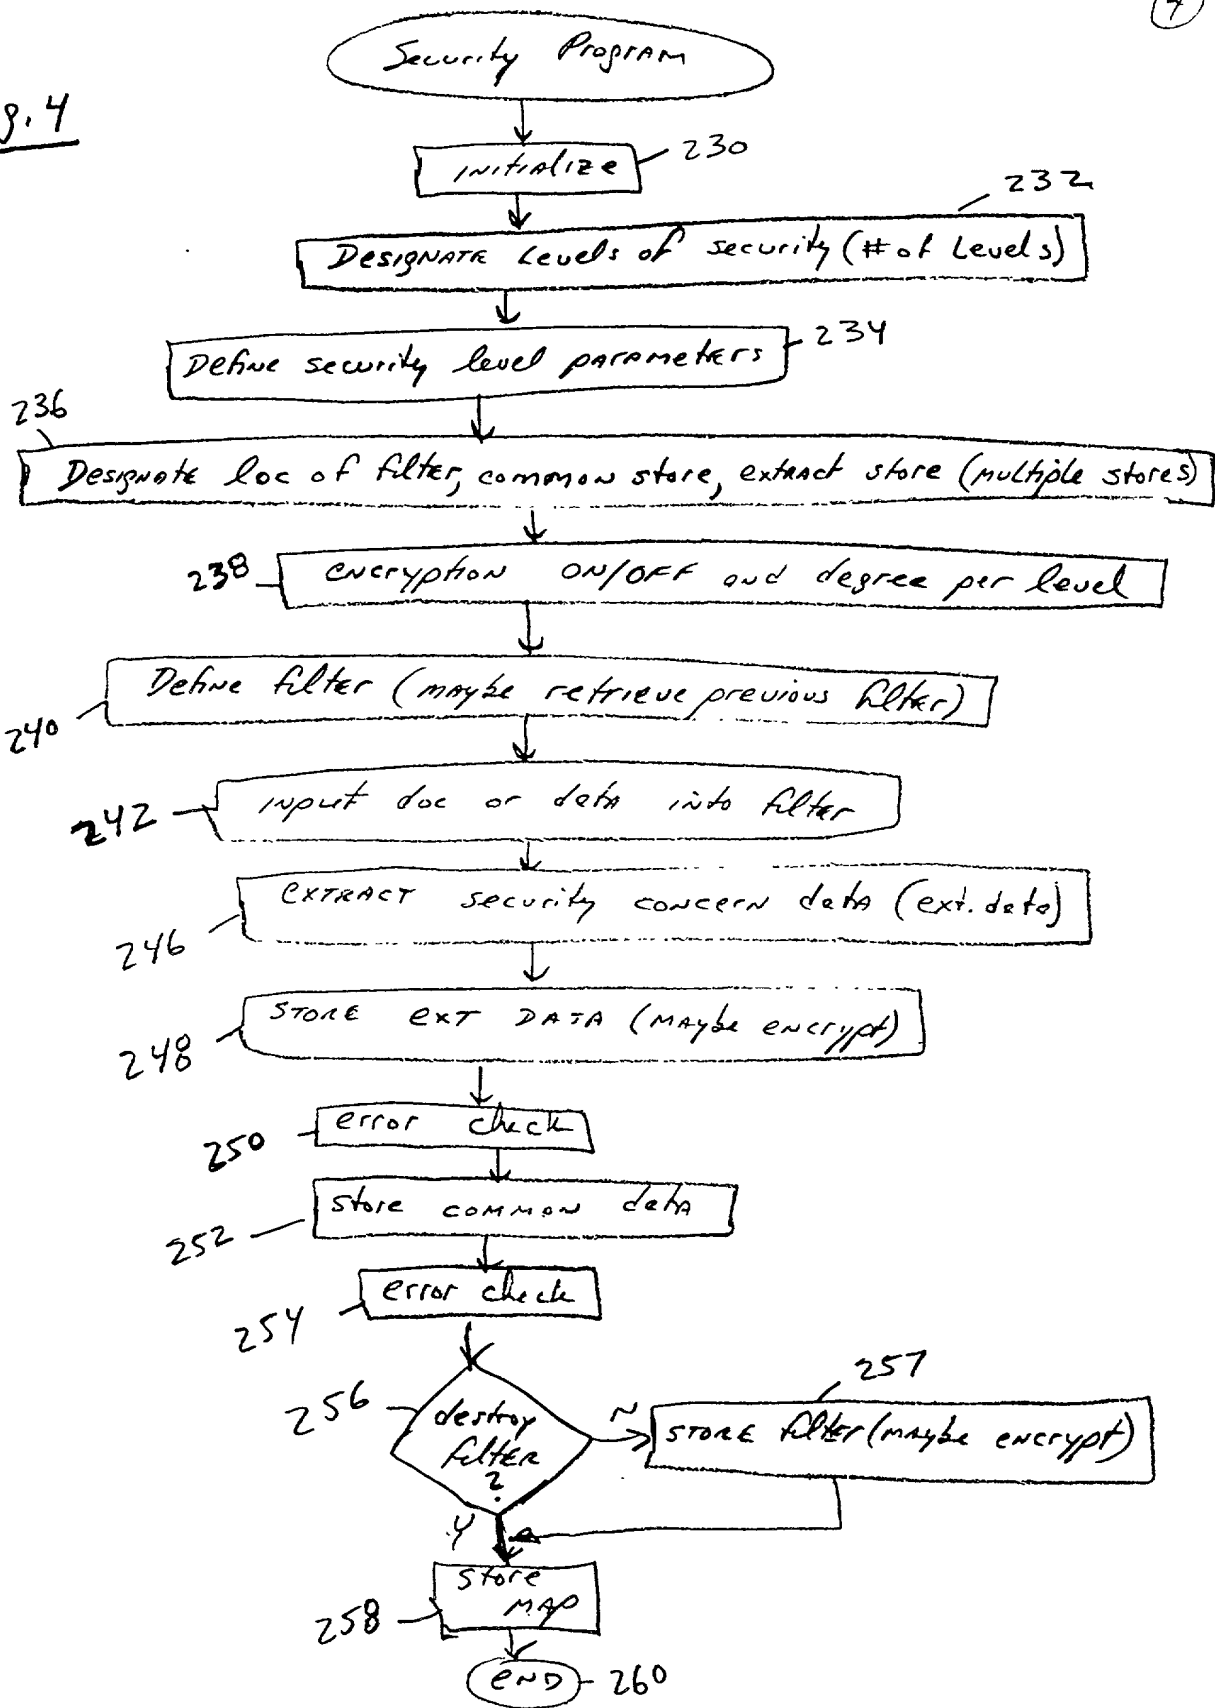 4
g. 4
Security Program
initialize
230
232
Designate Levels of security (# of Levels)
Define security level parameters
234
236
Designate loc of filter, common store, extract store (multiple stores)
238
encryption ON/OFF and degree per level
Define filter (maybe retrieve previous filter)
240
input doc or data into filter
242
extract security concern data (ext. data)
246
store ext data (maybe encrypt)
248
error check
250
store common data
252
error check
254
256
destroy
filter
?
N
257
store filter (maybe encrypt)
Y
store
map
258
end
260